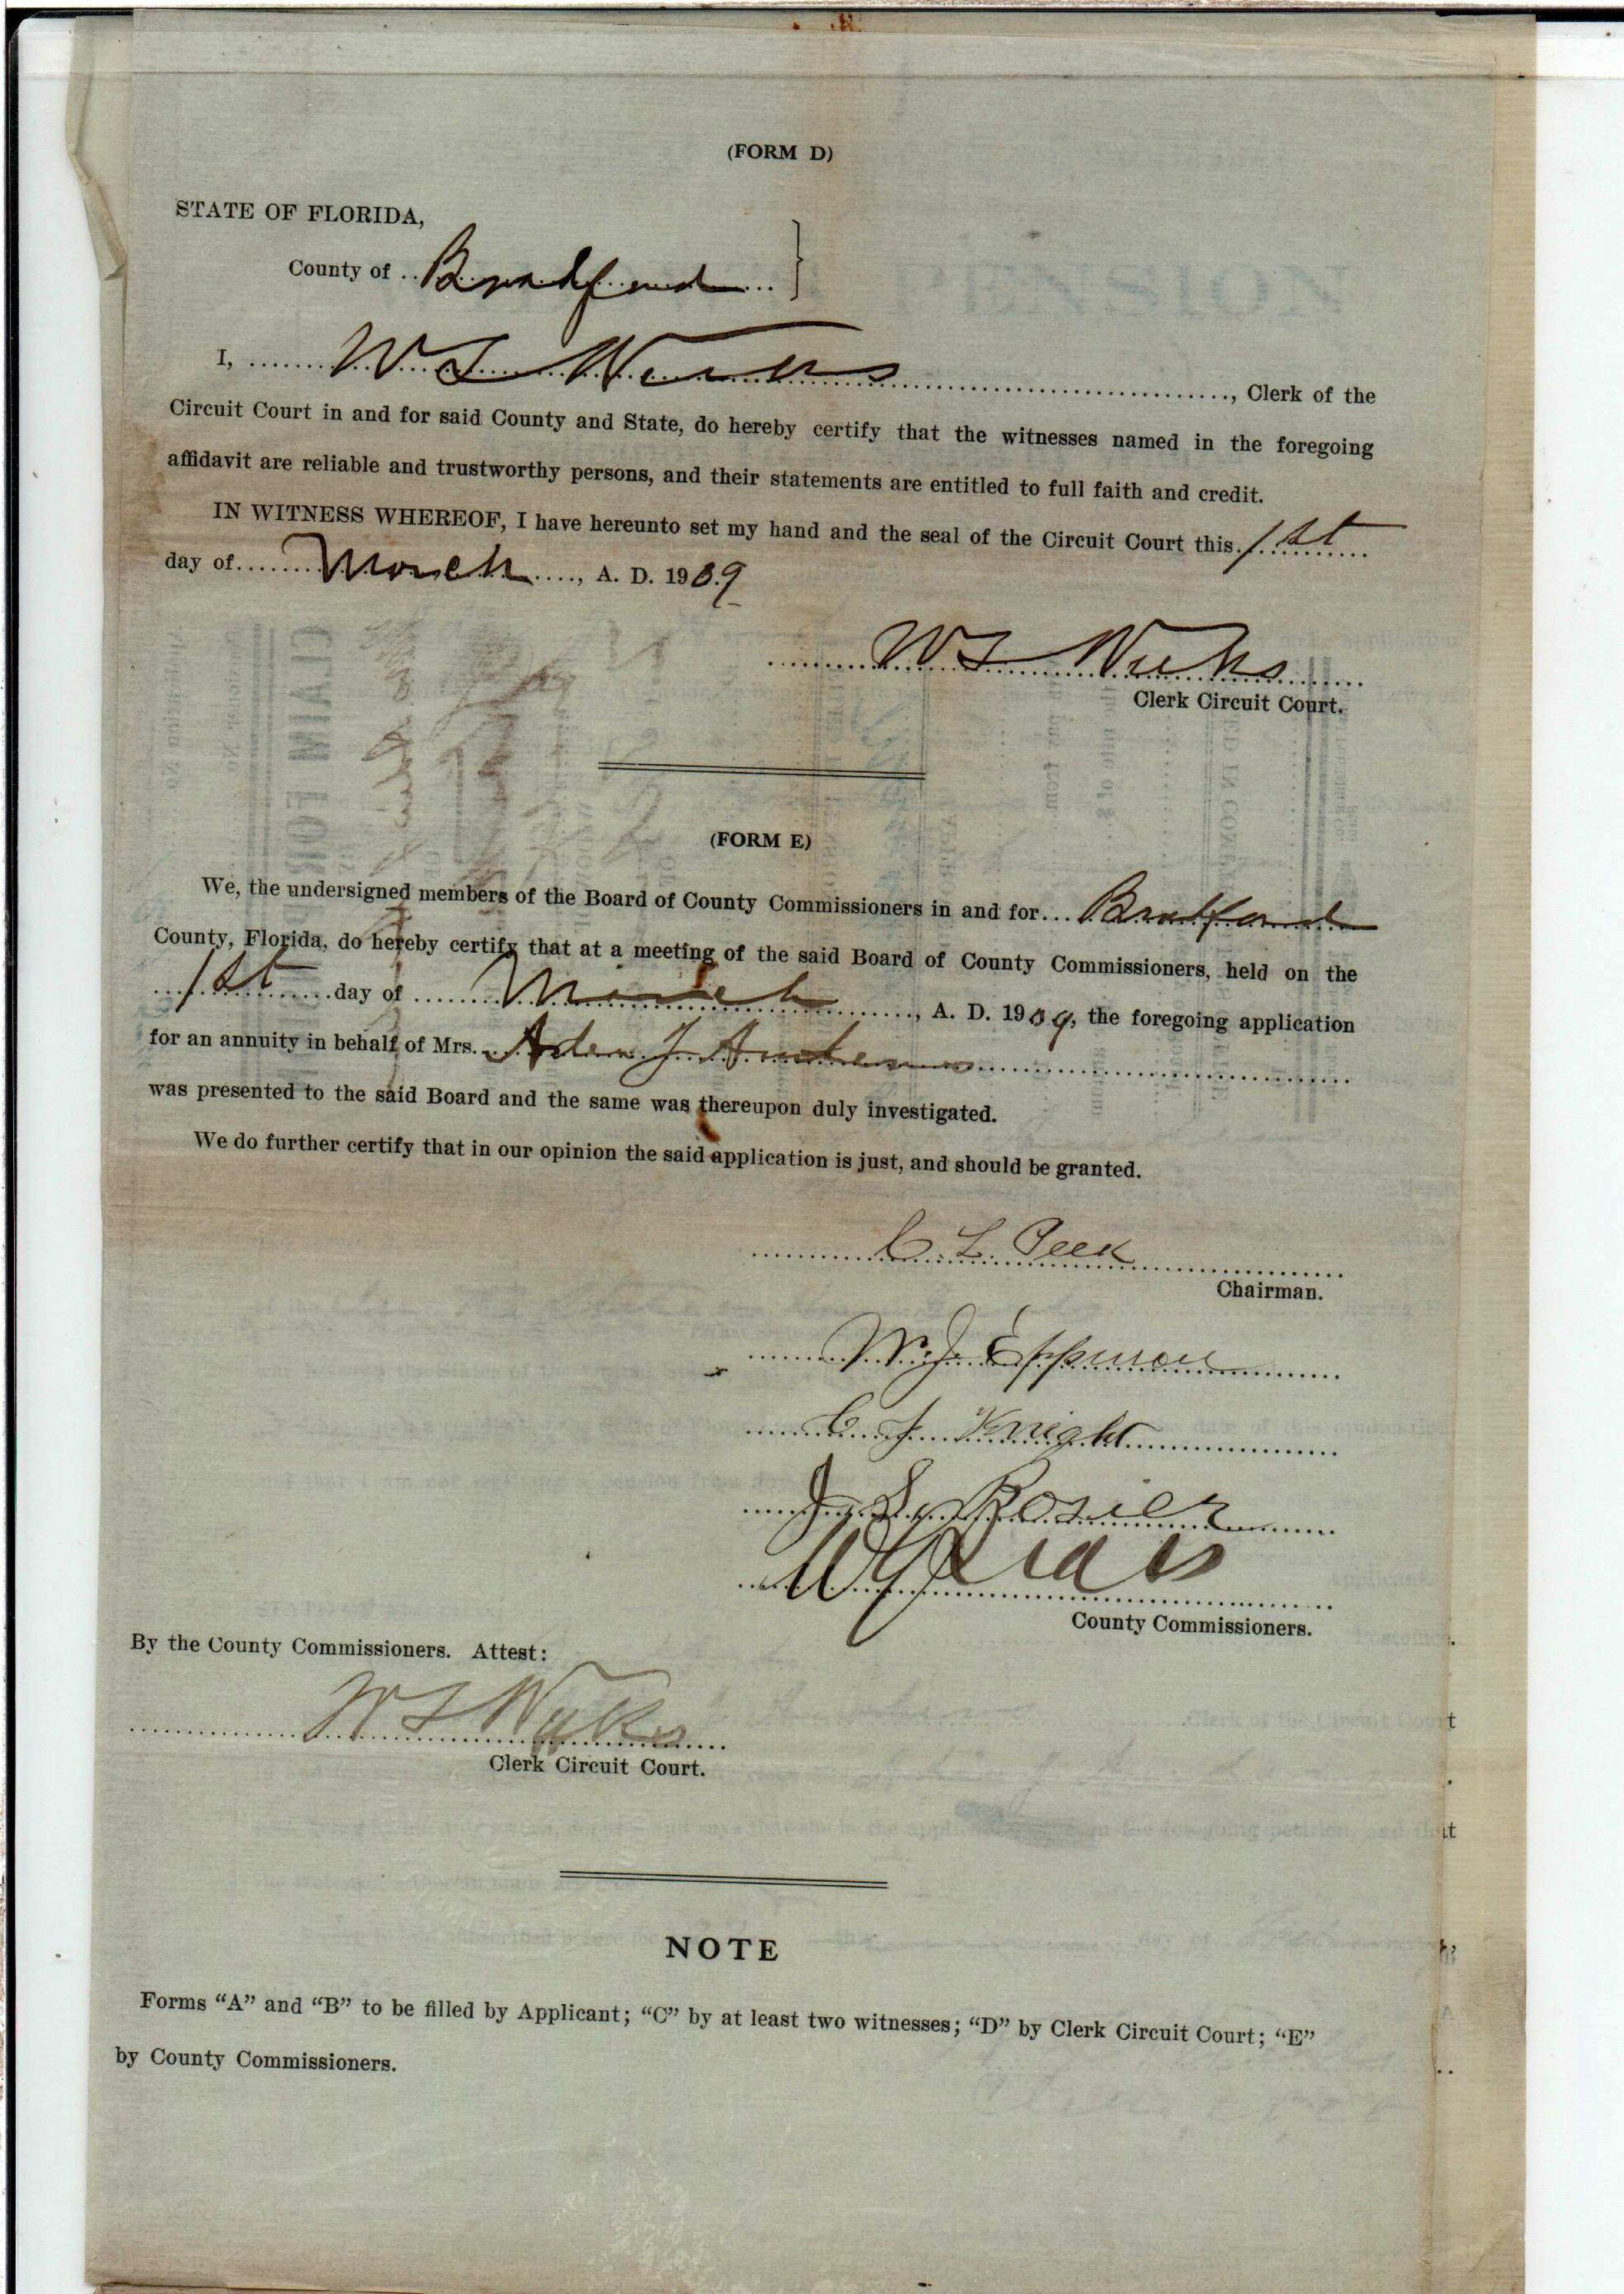 (FORM D)
STATE OF FLORIDA,
County of Bradford
I, W S Weeks, Clerk of the
Circuit Court in and for said County and State, do hereby certify that the witnesses named in the foregoing
affidavit are reliable and trustworthy persons, and their statements are entitled to full faith and credit.
IN WITNESS WHEREOF, I have hereunto set my hand and the seal of the Circuit Court this 1st
day of March, A. D. 1909
W S Weeks
Clerk Circuit Court.
(FORM E)
We, the undersigned members of the Board of County Commissioners in and for Bradford
County, Florida, do hereby certify that at a meeting of the said Board of County Commissioners, held on the
1st day of March, A. D. 1909, the foregoing application
for an annuity in behalf of Mrs. J
was presented to the said Board and the same was thereupon duly investigated.
We do further certify that in our opinion the said application is just, and should be granted.
C. L. Peek
Chairman.
W. J. Epperson
C. J. Knight
J. S. Rosier
County Commissioners.
By the County Commissioners. Attest:
W S Weeks
Clerk Circuit Court.
NOTE
Forms “A” and “B” to be filled by Applicant; “C” by at least two witnesses; “D” by Clerk Circuit Court; “E”
by County Commissioners.